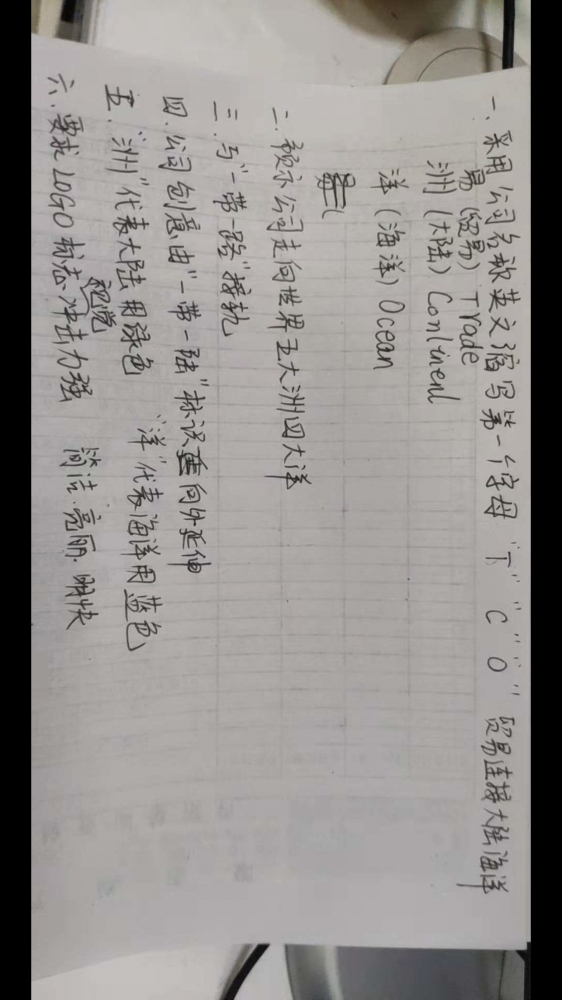 一、采用公司名称英文缩写第一个字母 "T" "C" "O" 贸易连接大陆海洋
易(贸易) Trade
洲(大陆) Continenl
洋(海洋) Ocean
二、预示公司走向世界五大洲四大洋
三、与"一带一路"接轨
四、公司创意由"一带一陆"标识向外延伸
五、"洲"代表大陆用绿色 "洋"代表海洋用蓝色
六、要求LOGO标志视觉冲击力强 简洁、亮丽、明快